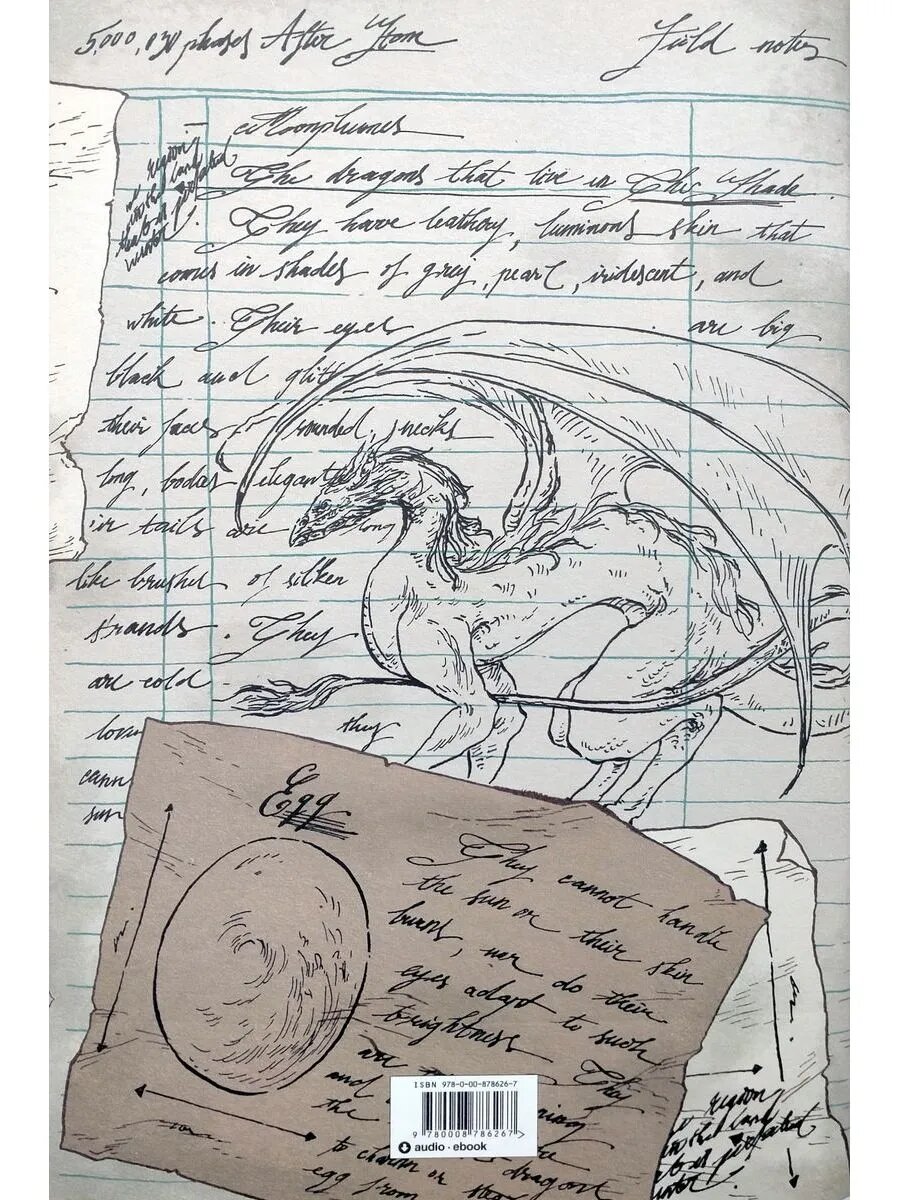 5,000,030 phases After
Field notes
Moonplumes
The dragons that live in The Shade
They have leathery, luminous skin that
comes in shades of grey, pearl, iridescent, and
white. Their eyes are big
black and glitt
their faces rounded, necks
long, bodies elegant
ir tails are long
like brushes of silken
strands. They
are cold
they
cann
sun
Egg
They cannot handle
the sun on their skin
burns, nor do their
eyes adapt to such
brightness They
are
and
the
to charm or
egg from
dragon
region
ISBN 978-0-00-878626-7
9 780008 786267 >
audio · ebook